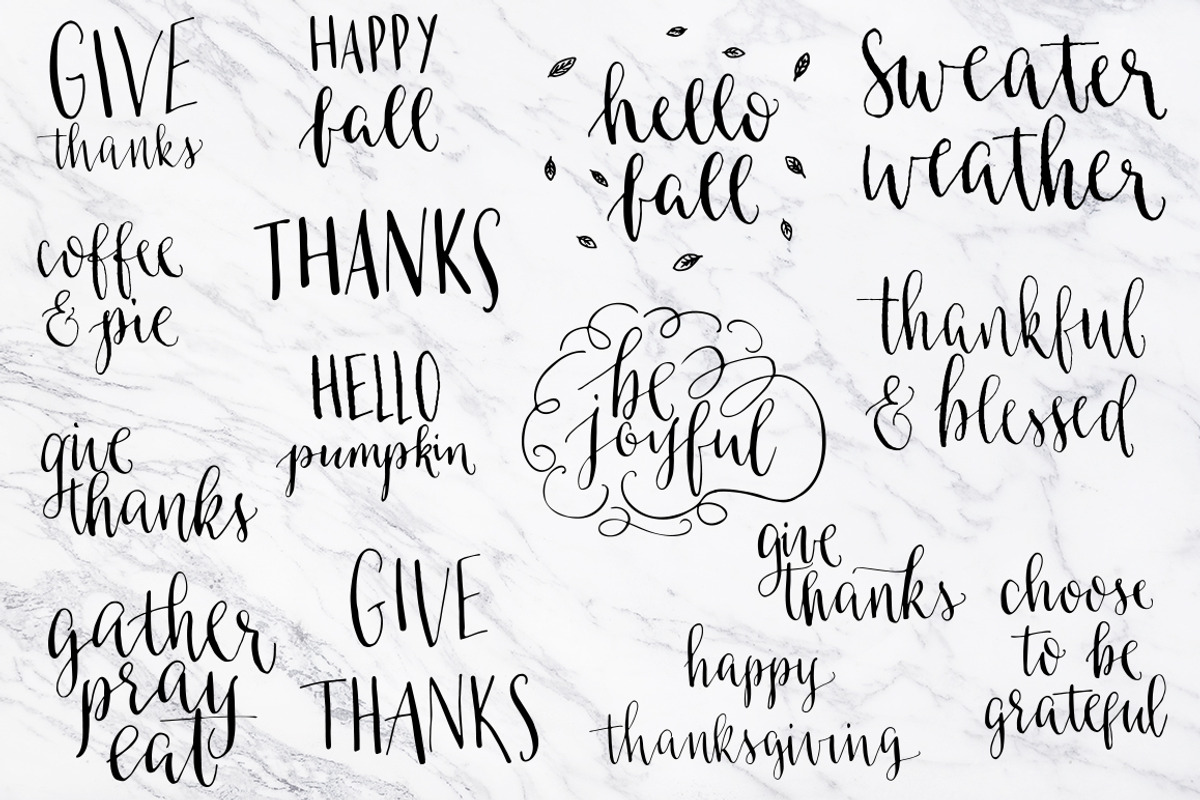 GIVE
thanks
HAPPY
fall
hello
fall
sweater
weather
coffee
& pie
THANKS
thankful
& blessed
HELLO
pumpkin
be
joyful
give
thanks
GIVE
THANKS
give
thanks
choose
to be
grateful
gather
pray
eat
happy
thanksgiving